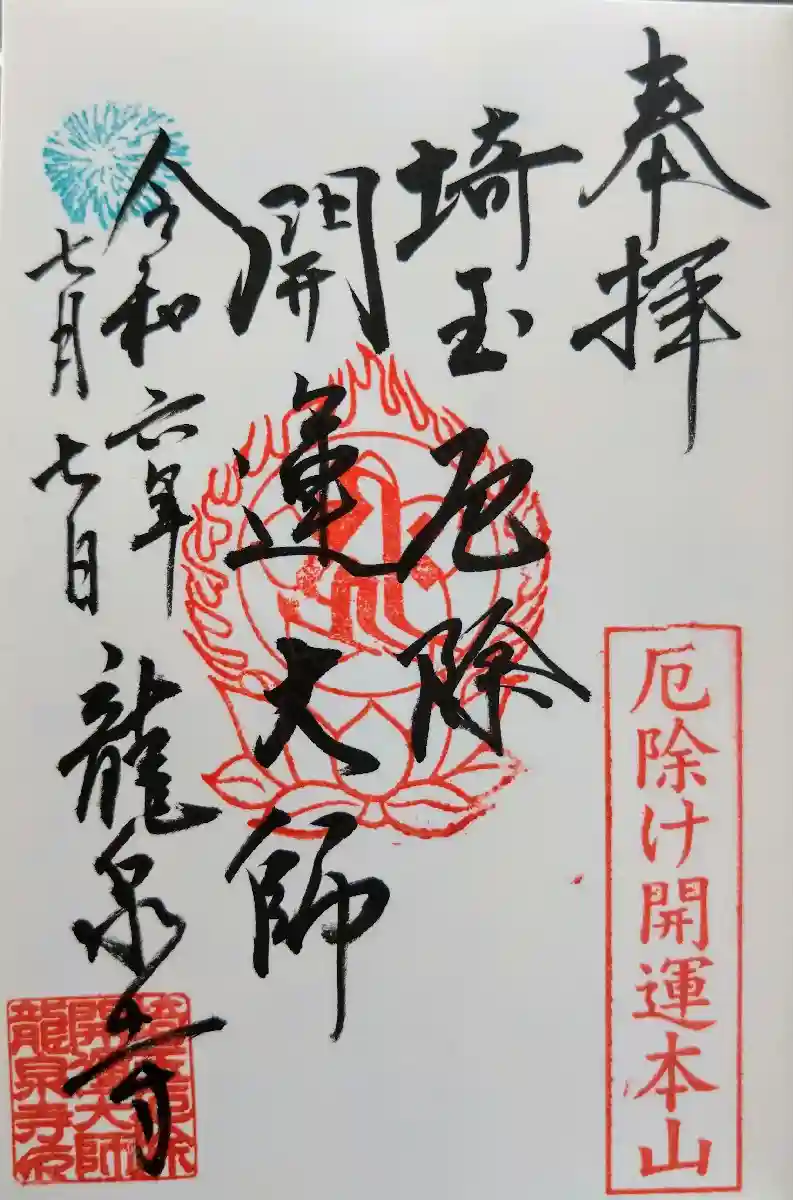 奉拝
厄除け開運本山
埼玉厄除
開運大師
令和六年
七月七日
龍泉寺
埼玉厄除
開運大師
龍泉寺印